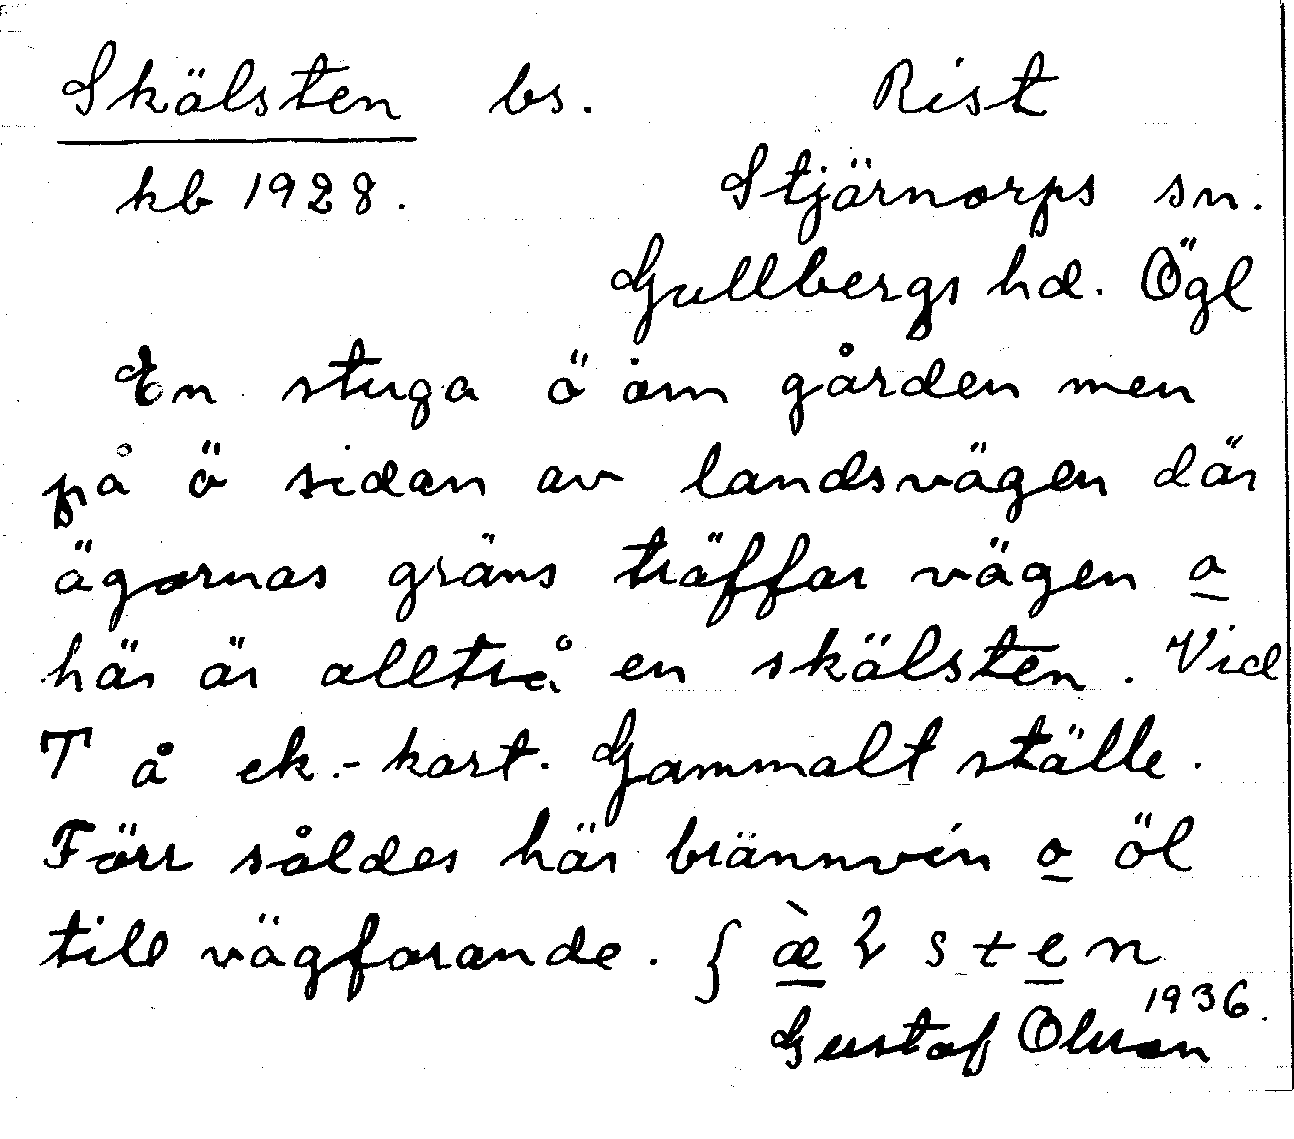 Skälsten bs. Rist
kb 1928. Stjärnorps sn.
Gullbergs hd. Ögl
En stuga ö om gården men
på ö sidan av landsvägen där
ägornas gräns träffar vägen o
här är alltså en skälsten. Vid
T å ek.- kart. Gammalt ställe.
Förr såldes här brännvin o öl
till vägfarande. ʃæ̀ɽsten
1936.
Gustaf Olsson